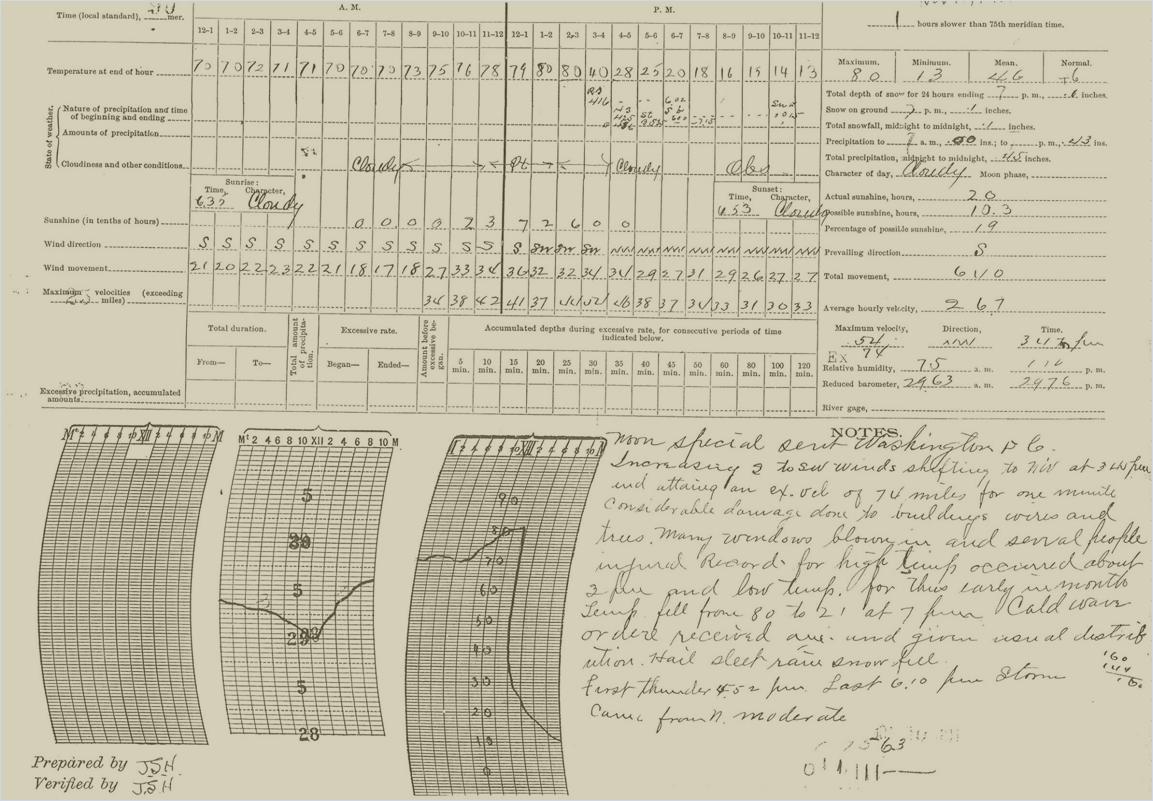 A. M.
P. M.
Time (local standard), 90 mer.
hours slower than 75th meridian time.
12–1 1–2 2–3 3–4 4–5 5–6 6–7 7–8 8–9 9–10 10–11 11–12 12–1 1–2 2–3 3–4 4–5 5–6 6–7 7–8 8–9 9–10 10–11 11–12
Temperature at end of hour 70 70 72 71 71 70 70 70 73 75 76 78 79 80 80 40 28 25 20 18 16 15 14 13
Maximum. Minimum. Mean. Normal.
80 13 46
State of weather.
Nature of precipitation and time of beginning and ending
Amounts of precipitation
Cloudiness and other conditions Cloudy Pt Cloudy Obs
Total depth of snow for 24 hours ending 7 p. m., inches.
Snow on ground 7 p. m. .1 inches.
Total snowfall, midnight to midnight, .1 inches.
Precipitation to 7 a. m., .00 ins.; to p. m., .43 ins.
Total precipitation, midnight to midnight, .45 inches.
Character of day, Cloudy Moon phase,
Sunrise:
Time, Character,
Cloudy
Sunset:
Time, Character,
Cloudy
Actual sunshine, hours, 2.0
Possible sunshine, hours, 10.3
Percentage of possible sunshine, 19
Sunshine (in tenths of hours) 0 0 0 0 2 3 7 2 6 0 0
Wind direction S S S S S S S S S S S S S SW SW SW NW NW NW NW NW NW NW NW
Prevailing direction, S
Wind movement 21 20 22 23 22 21 18 17 18 27 33 34 36 32 32 34 31 29 27 31 29 26 27 27
Total movement, 610
Maximum velocities (exceeding miles) 34 38 42 41 37 38 37 33 31 30 33
Average hourly velocity, 26.7
Maximum velocity, Direction, Time.
54 NW
Ex 74
Relative humidity, 75 a. m. p. m.
Reduced barometer, 29.63 a. m. 29.76 p. m.
River gage,
Total duration.
From— To—
Total amount of precipitation.
Excessive rate.
Began— Ended—
Amount before excessive began.
Accumulated depths during excessive rate, for consecutive periods of time indicated below.
5 min. 10 min. 15 min. 20 min. 25 min. 30 min. 35 min. 40 min. 45 min. 50 min. 60 min. 80 min. 100 min. 120 min.
Excessive precipitation, accumulated amounts.
NOTES.
Noon special sent Washington D C.
Increasing S to SW winds shifting to NW at 3 45 pm
and attaing an ex. vel of 74 miles for one minute
Considerable damage done to buildings wires and
trees. Many windows blown in and serval people
injured Records for high temp occurred about
2 pm and low temp. for this early in month
Temp. fell from 80 to 21 at 7 pm Cold wave
order received and given usual distrib
ution. Hail sleet rain snow fell.
First thunder 4.52 pm. Last 6.10 pm Storm
Came from N. moderate
M 2 4 6 8 10 XII 2 4 6 8 10 M
5
30
5
29
5
28
90
80
70
60
50
40
30
20
10
0
Prepared by J.S.H.
Verified by J.S.H.